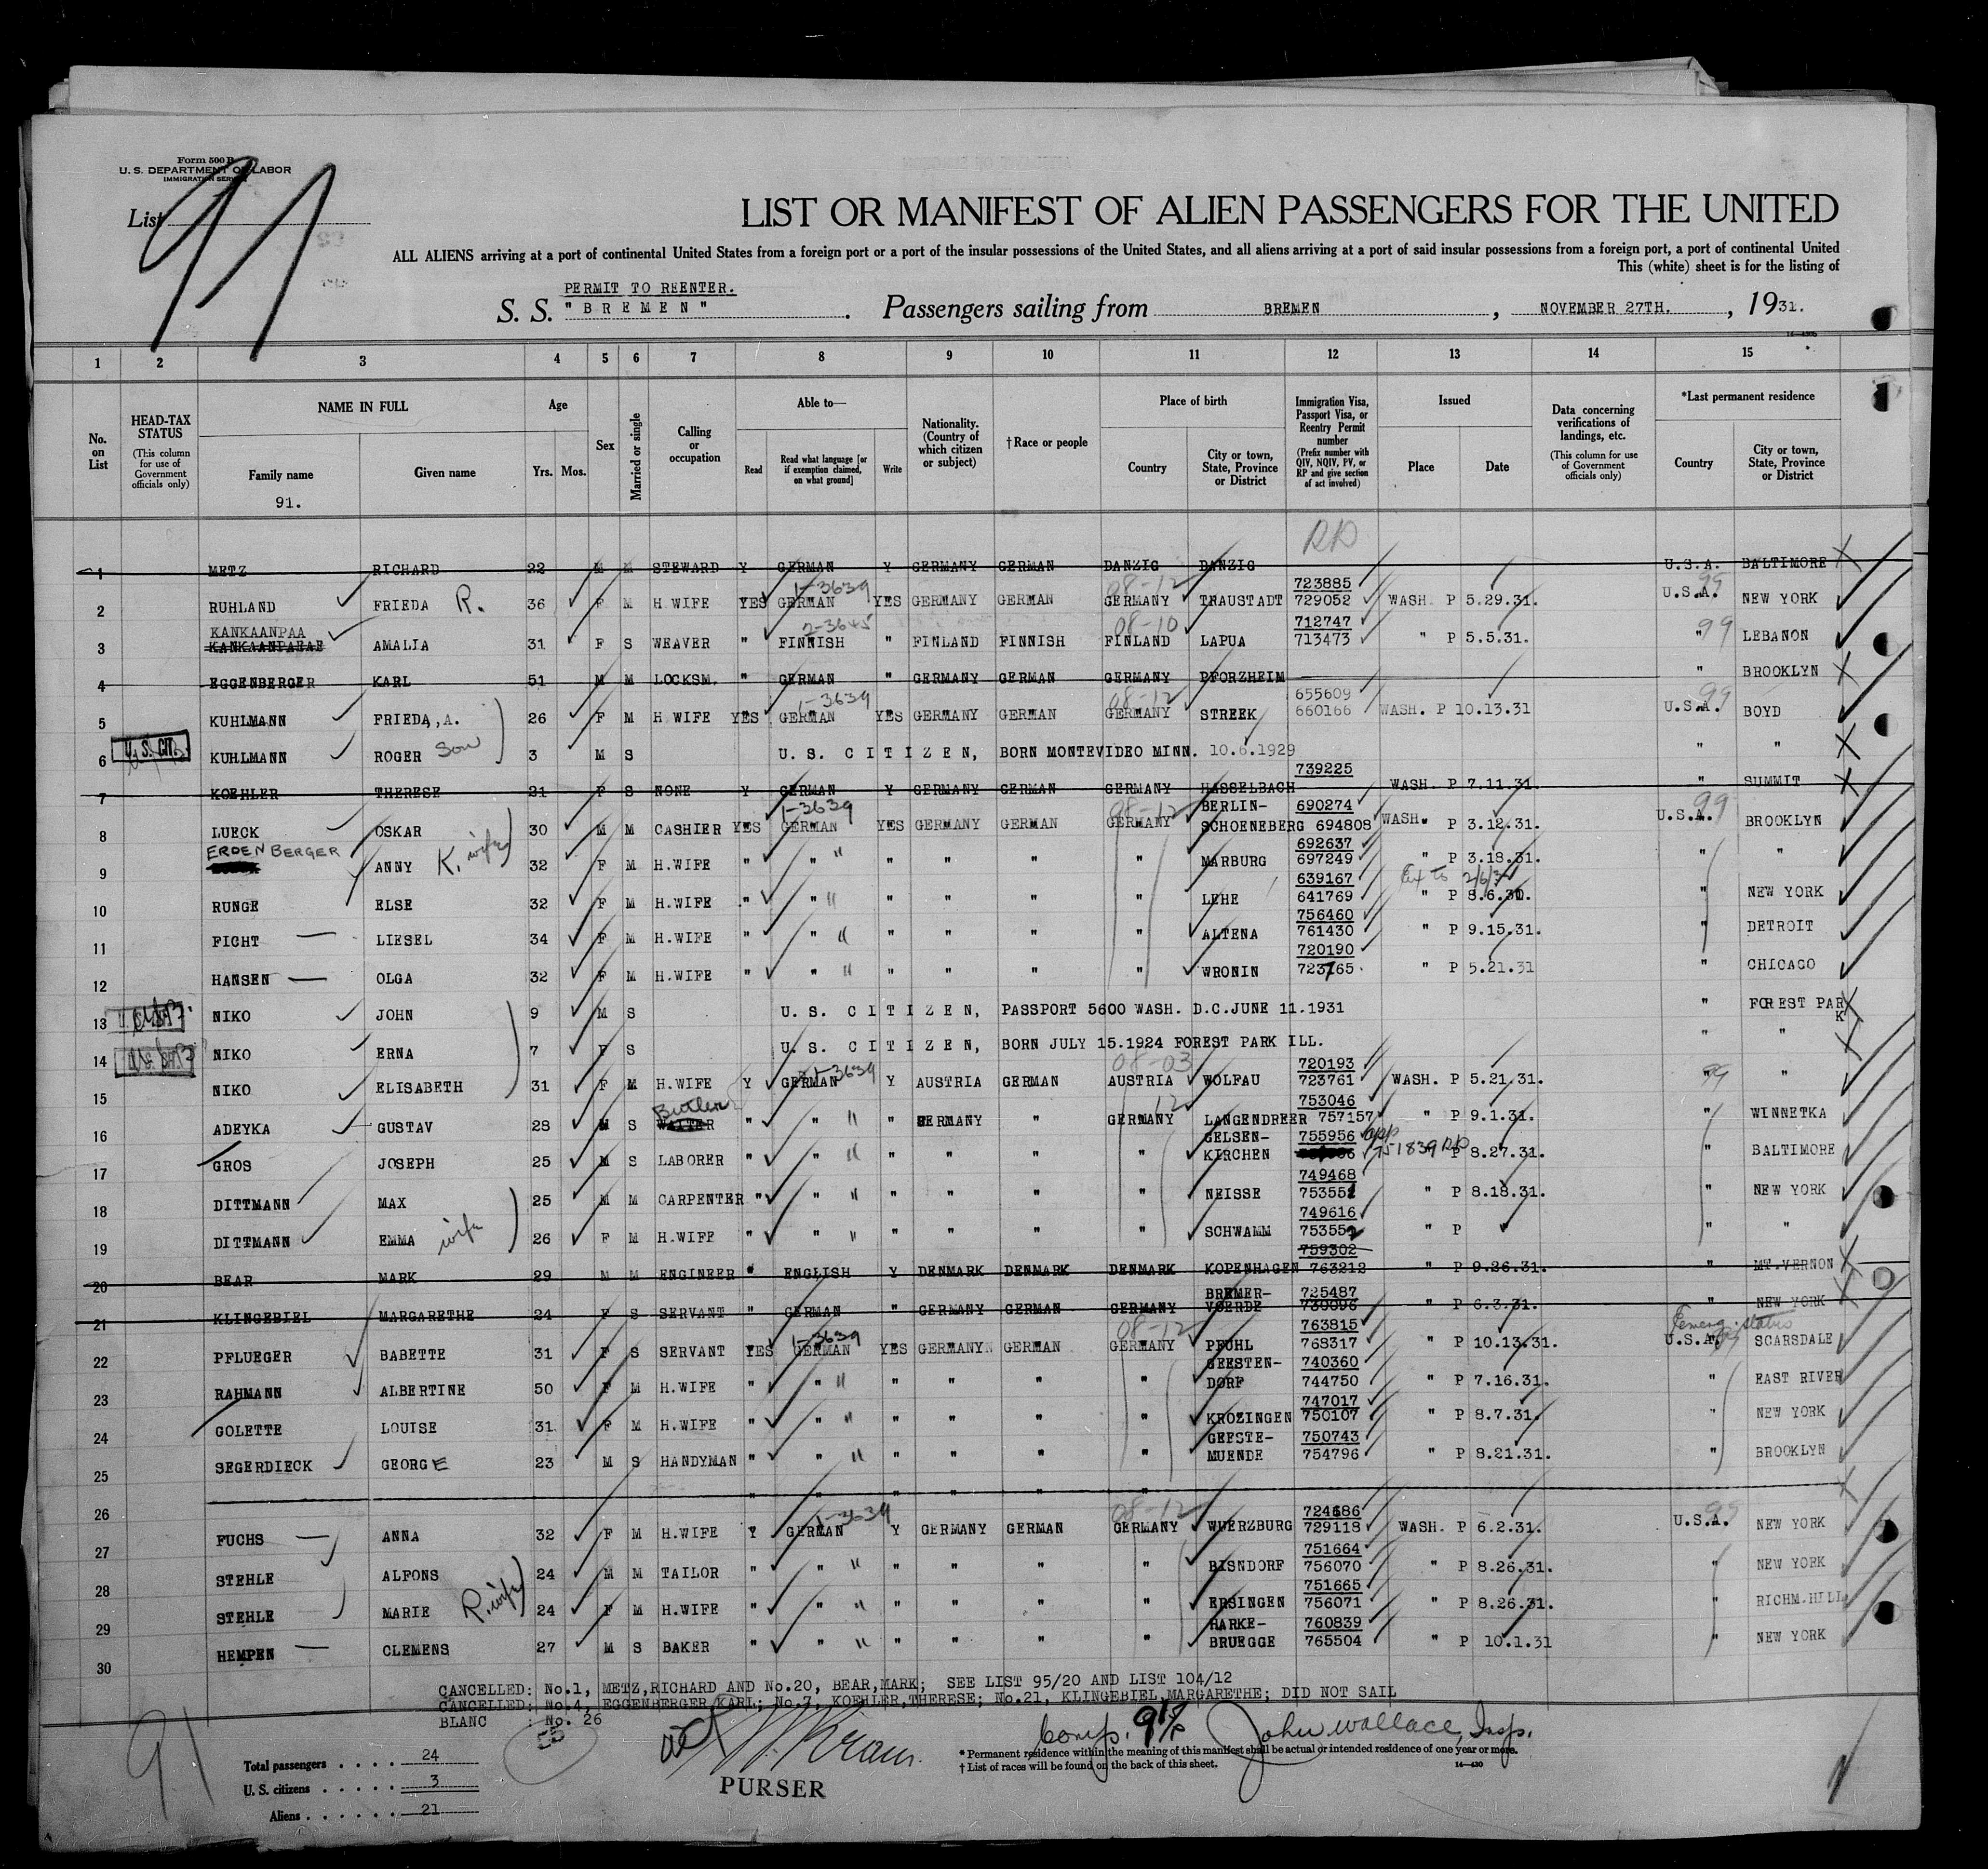 Form 500 B
U. S. DEPARTMENT OF LABOR
IMMIGRATION SERVICE
List 91
LIST OR MANIFEST OF ALIEN PASSENGERS FOR THE UNITED
ALL ALIENS arriving at a port of continental United States from a foreign port or a port of the insular possessions of the United States, and all aliens arriving at a port of said insular possessions from a foreign port, a port of continental United
This (white) sheet is for the listing of
PERMIT TO REENTER.
S. S. "BREMEN". Passengers sailing from BREMEN, NOVEMBER 27TH., 1931.
1 2 3 4 5 6 7 8 9 10 11 12 13 14 15
No. on List
HEAD-TAX STATUS (This column for use of Government officials only)
NAME IN FULL Family name Given name
91.
Age Yrs. Mos.
Sex
Married or single
Calling or occupation
Able to— Read Read what language [or if exemption claimed, on what ground] Write
Nationality. (Country of which citizen or subject)
†Race or people
Place of birth Country City or town, State, Province or District
Immigration Visa, Passport Visa, or Reentry Permit number (Prefix number with QIV, NQIV, PV, or RP and give section of act involved)
Issued Place Date
Data concerning verifications of landings, etc. (This column for use of Government officials only)
*Last permanent residence Country City or town, State, Province or District
RP
1 METZ RICHARD 22 M M STEWARD Y GERMAN Y GERMANY GERMAN DANZIG DANZIG U.S.A. BALTIMORE
1-3639 08-12 723885 99
2 RUHLAND FRIEDA R. 36 F M H.WIFE YES GERMAN YES GERMANY GERMAN GERMANY TRAUSTADT 729052 WASH. P 5.29.31. U.S.A. NEW YORK
KANKAANPAA 2-3645 08-10 712747 99
3 KANKAANPAEAE AMALIA 31 F S WEAVER " FINNISH " FINLAND FINNISH FINLAND LAPUA 713473 " P 5.5.31. " LEBANON
4 EGGENBERGER KARL 51 M M LOCKSM. " GERMAN " GERMANY GERMAN GERMANY PFORZHEIM " BROOKLYN
1-3639 08-12 655609 99
5 KUHLMANN FRIEDA,A. 26 F M H WIFE YES GERMAN YES GERMANY GERMAN GERMANY STREEK 660166 WASH. P 10.13.31 U.S.A. BOYD
6 U.S. CIT. KUHLMANN ROGER Son 3 M S U. S. CITIZEN, BORN MONTEVIDEO MINN. 10.6.1929 " "
739225
7 KOEHLER THERESE 21 F S NONE Y GERMAN Y GERMANY GERMAN GERMANY HASSELBACH WASH. P 7.11.31. " SUMMIT
1-3639 08-12 BERLIN- 690274 99
8 LUECK OSKAR 30 M M CASHIER YES GERMAN YES GERMANY GERMAN GERMANY SCHOENEBERG 694808 WASH. P 3.12.31. U.S.A. BROOKLYN
ERDENBERGER 692637
9 ANNY K. wife 32 F M H.WIFE " " " " " " MARBURG 697249 " P 3.18.31. " "
639167 Ext to
10 RUNGE ELSE 32 F M H.WIFE " " " " " " LEHE 641769 " P NEW YORK
756460
11 FICHT LIESEL 34 F M H.WIFE " " " " " " ALTENA 761430 " P 9.15.31. " DETROIT
720190
12 HANSEN OLGA 32 F M H.WIFE " " " " " " WRONIN 723765 " P 5.21.31 " CHICAGO
13 NIKO JOHN 9 M S U. S. CITIZEN, PASSPORT 5600 WASH. D.C.JUNE 11.1931 " FOREST PARK
14 NIKO ERNA 7 F S U. S. CITIZEN, BORN JULY 15.1924 FOREST PARK ILL. " "
1-3639 08-03 720193 99
15 NIKO ELISABETH 31 F M H.WIFE Y GERMAN Y AUSTRIA GERMAN AUSTRIA WOLFAU 723761 WASH. P 5.21.31. "
Butler 12 753046
16 ADEYKA GUSTAV 28 M S WAITER " " " GERMANY " GERMANY LANGENDREER 757157 " P 9.1.31. " WINNETKA
GELSEN- 755956 app
17 GROS JOSEPH 25 M S LABORER " " " " " " KIRCHEN 751839 RP P 8.27.31. " BALTIMORE
749468
18 DITTMANN MAX 25 M M CARPENTER " " " " " " NEISSE 753551 " P 8.18.31. " NEW YORK
749616
19 DITTMANN EMMA wife 26 F M H.WIFE " " " " " " SCHWAMM 753552 " P " " "
759302
20 BEAR MARK 29 M M ENGINEER " ENGLISH Y DENMARK DENMARK DENMARK KOPENHAGEN 763212 " P 9.26.31. " MT.VERNON
BREMER- 725487
21 KLINGEBIEL MARGARETHE 24 F S SERVANT " GERMAN " GERMANY GERMAN GERMANY VOERDE 730096 " P 6.3.31. " NEW YORK
1-3639 08-12 763815 status 99
22 PFLUEGER BABETTE 31 F S SERVANT YES GERMAN YES GERMANY GERMAN GERMANY PFUHL 768317 " P 10.13.31. U.S.A. SCARSDALE
GEESTEN- 740360
23 RAHMANN ALBERTINE 50 F M H.WIFE " " " " " " DORF 744750 " P 7.16.31. " EAST RIVER
747017
24 GOLETTE LOUISE 31 F M H.WIFE " " " " " " KROZINGEN 750107 " P 8.7.31. " NEW YORK
GEESTE- 750743
25 SEGERDIECK GEORGE 23 M S HANDYMAN " " " " " " MUENDE 754796 " P 8.21.31. " BROOKLYN
26 " " " "
1-3639 08-12 724686 99
27 FUCHS ANNA 32 F M H.WIFE Y GERMAN Y GERMANY GERMAN GERMANY WUERZBURG 729118 WASH. P 6.2.31. U.S.A. NEW YORK
751664
28 STEHLE ALFONS 24 M M TAILOR " " " " " " BISNDORF 756070 " P 8.26.31. " NEW YORK
751665
29 STEHLE MARIE R. wife 24 F M H.WIFE " " " " " " ERSINGEN 756071 " P 8.26.31. " RICHM.HILL
HARKE- 760839
30 HEMPEN CLEMENS 27 M S BAKER " " " " " " BRUEGGE 765504 " P 10.1.31 " NEW YORK
CANCELLED: No.1, METZ,RICHARD AND No.20, BEAR,MARK; SEE LIST 95/20 AND LIST 104/12
CANCELLED: No.4, EGGENBERGER KARL; No.7, KOEHLER,THERESE; No.21, KLINGEBIEL,MARGARETHE; DID NOT SAIL
BLANC : No. 26
91
Total passengers . . . . 24
U. S. citizens . . . . . 3
Aliens . . . . . . 21
PURSER
comp. John Wallace, Insp.
* Permanent residence within the meaning of this manifest shall be actual or intended residence of one year or more.
† List of races will be found on the back of this sheet.
14—430